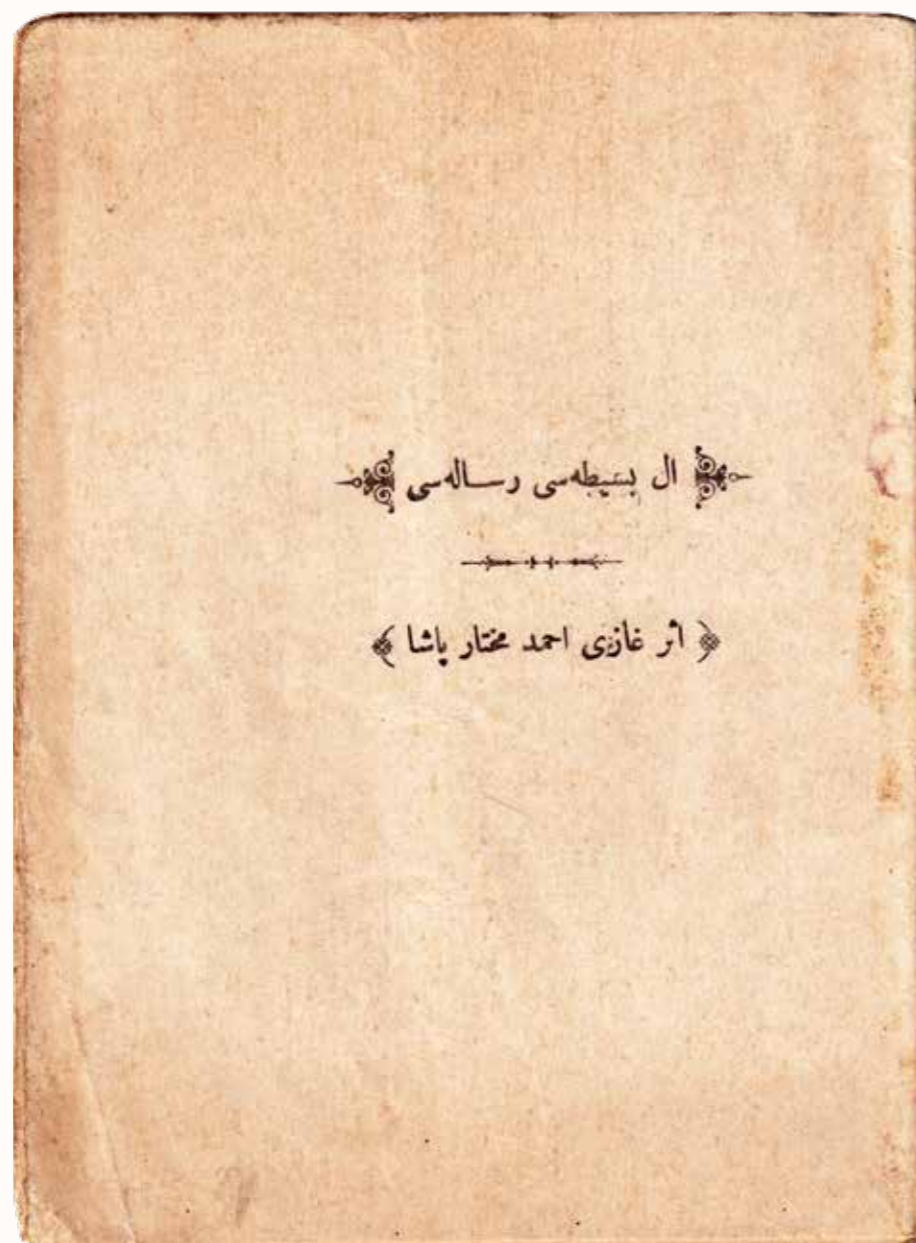 ال بسیطه‌سی رساله‌سی
اثر غازی احمد مختار پاشا